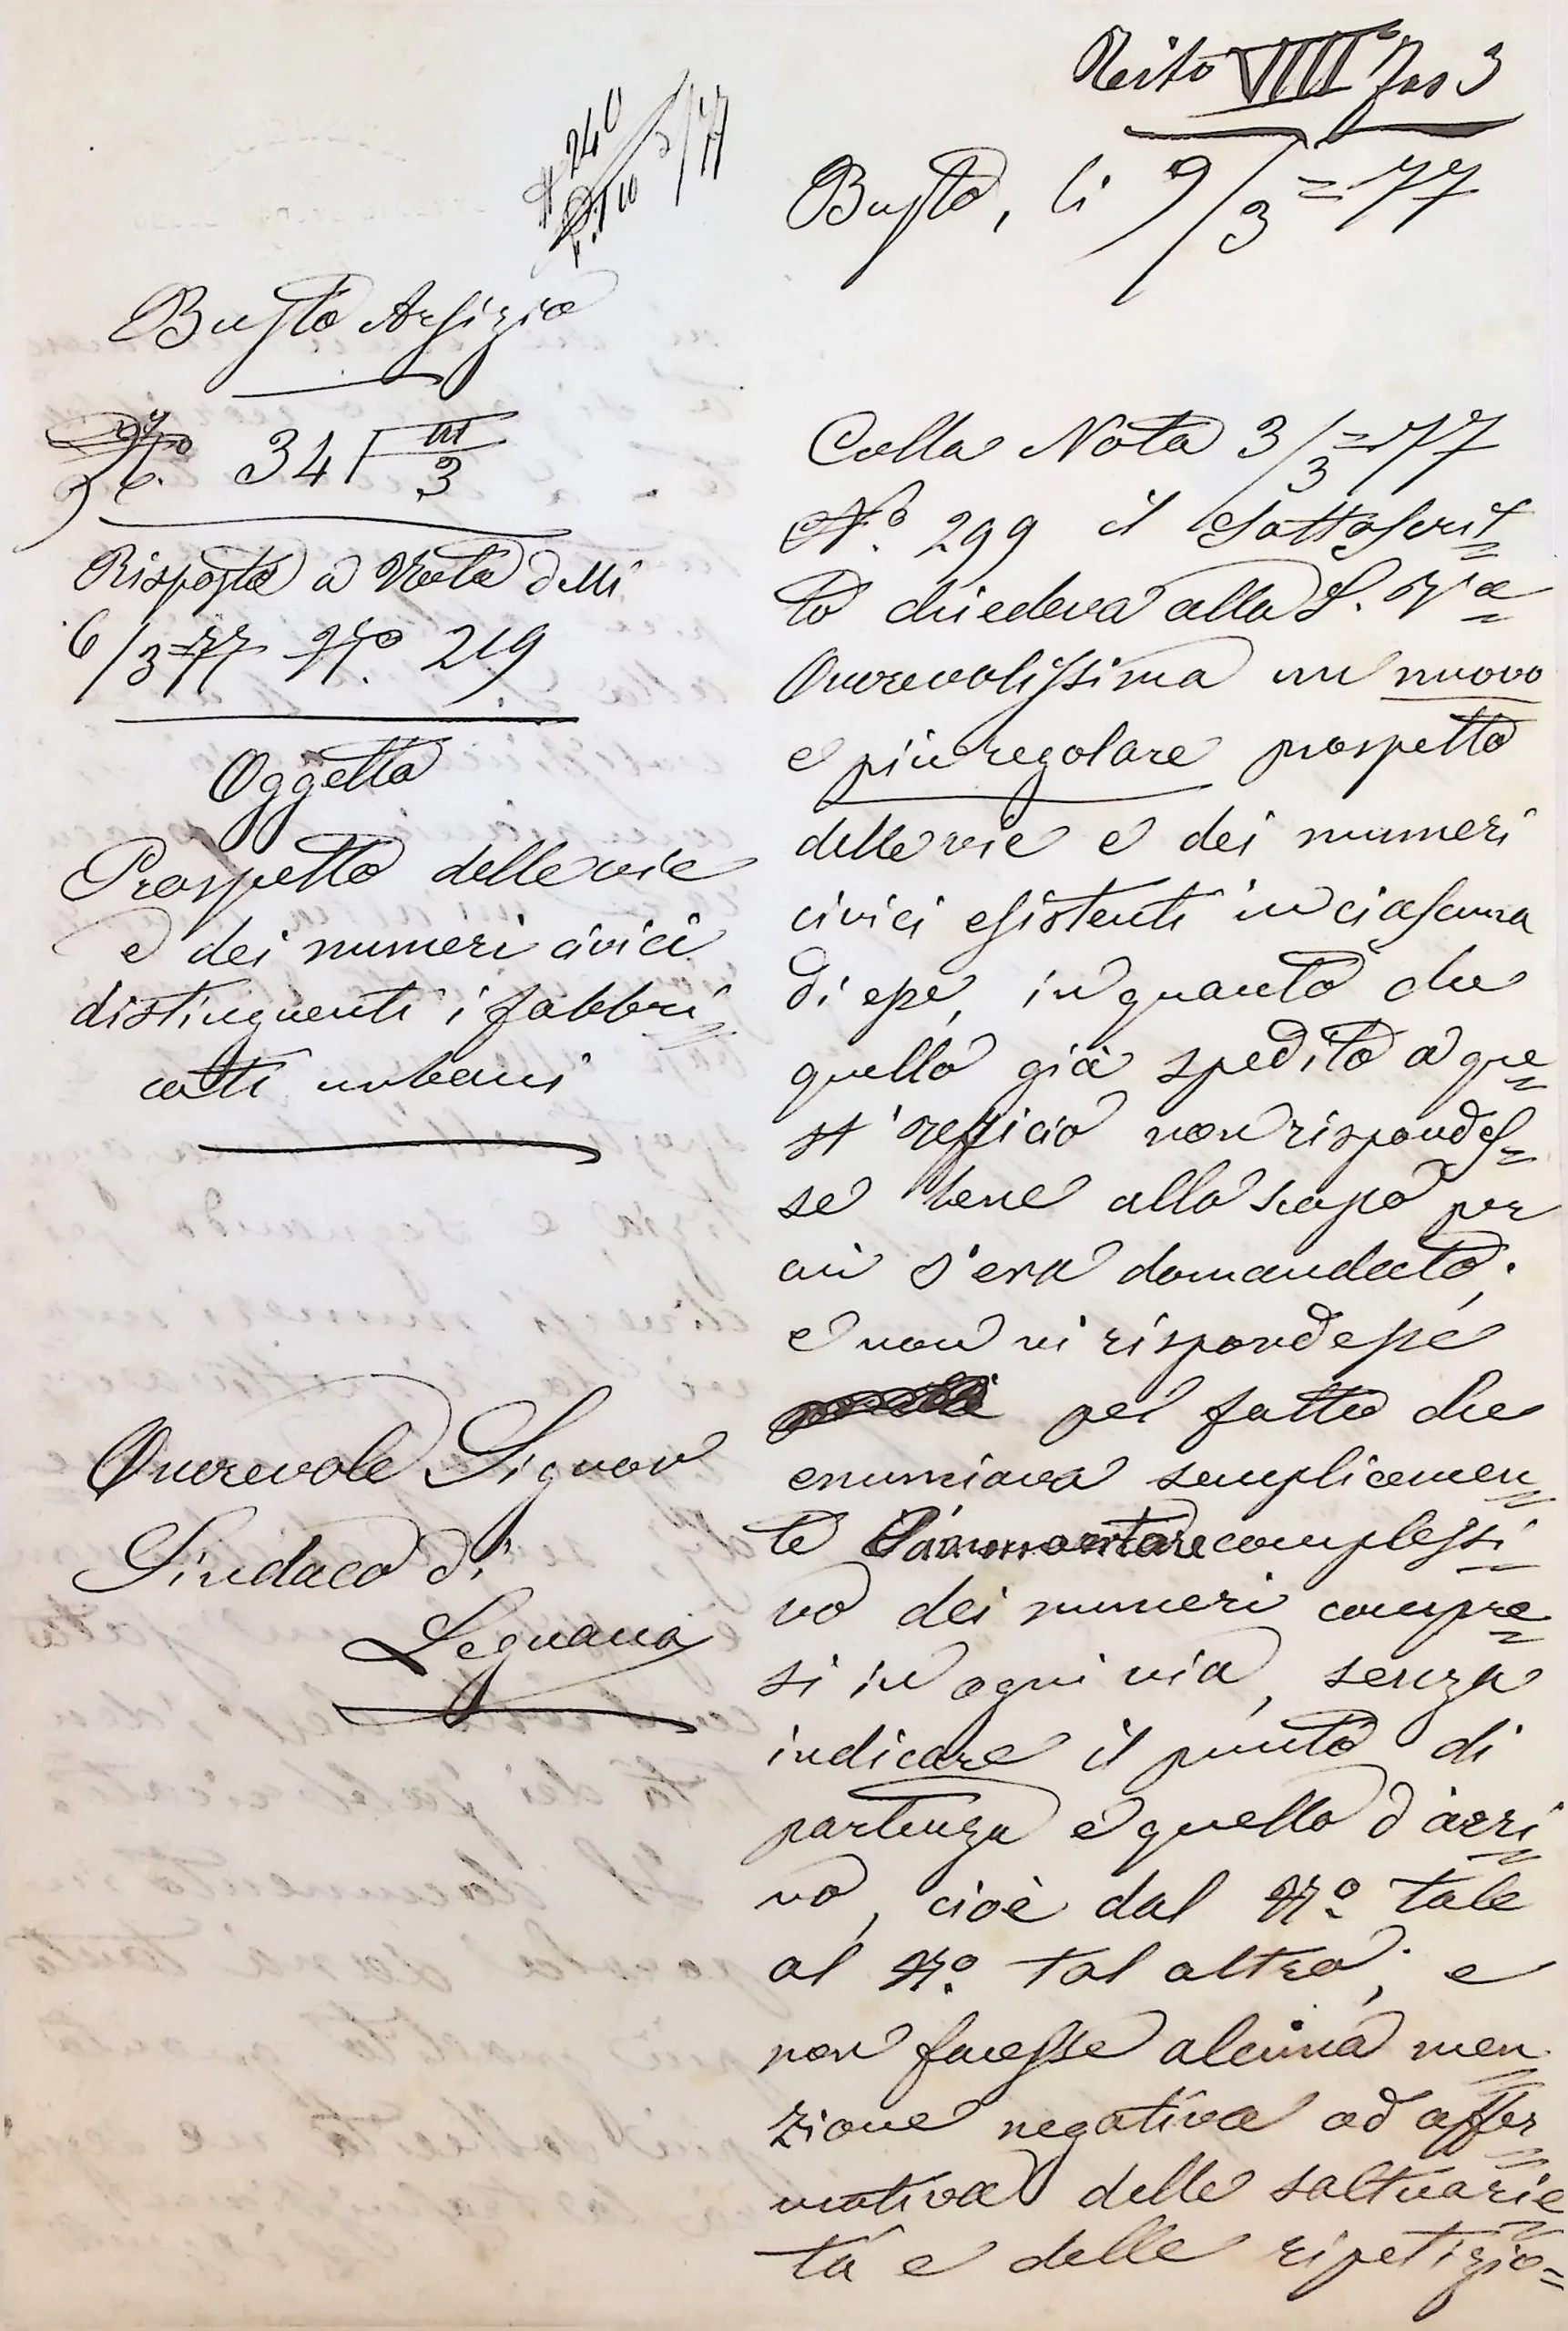 VIII Fas 3
Busto, li 9/3=77
240
3/77
Busto Arsizio
341 III/3
Risposta a Nota delli
6/3=77 N.º 219
Oggetto
Prospetto delle vie
e dei numeri civici
distinguenti i fabbri=
cati urbani
Onorevole Signor
Sindaco di
Legnano
Colla Nota 3/3=77
N.º 299 il Sottoscrit=
to chiedeva alla S. Vª
Onorevolissima un nuovo
e più regolare prospetto
delle vie e dei numeri
civici esistenti in ciascuna
di esse, in quanto che
quello già spedito a que=
st'officio non rispondes=
se bene allo scopo per
cui s'era domandato;
e non vi rispondesse
pel fatto che
enunciava semplicemen=
te l'ammontare complessi=
vo dei numeri compre=
si in ogni via, senza
indicare il punto di
partenza e quello d'arri=
vo, cioè dal N.º tale
al N.º tal altro; e
non facesse alcuna men=
zione negativa od affer=
mativa delle saltuarie=
tà e delle ripetizio=